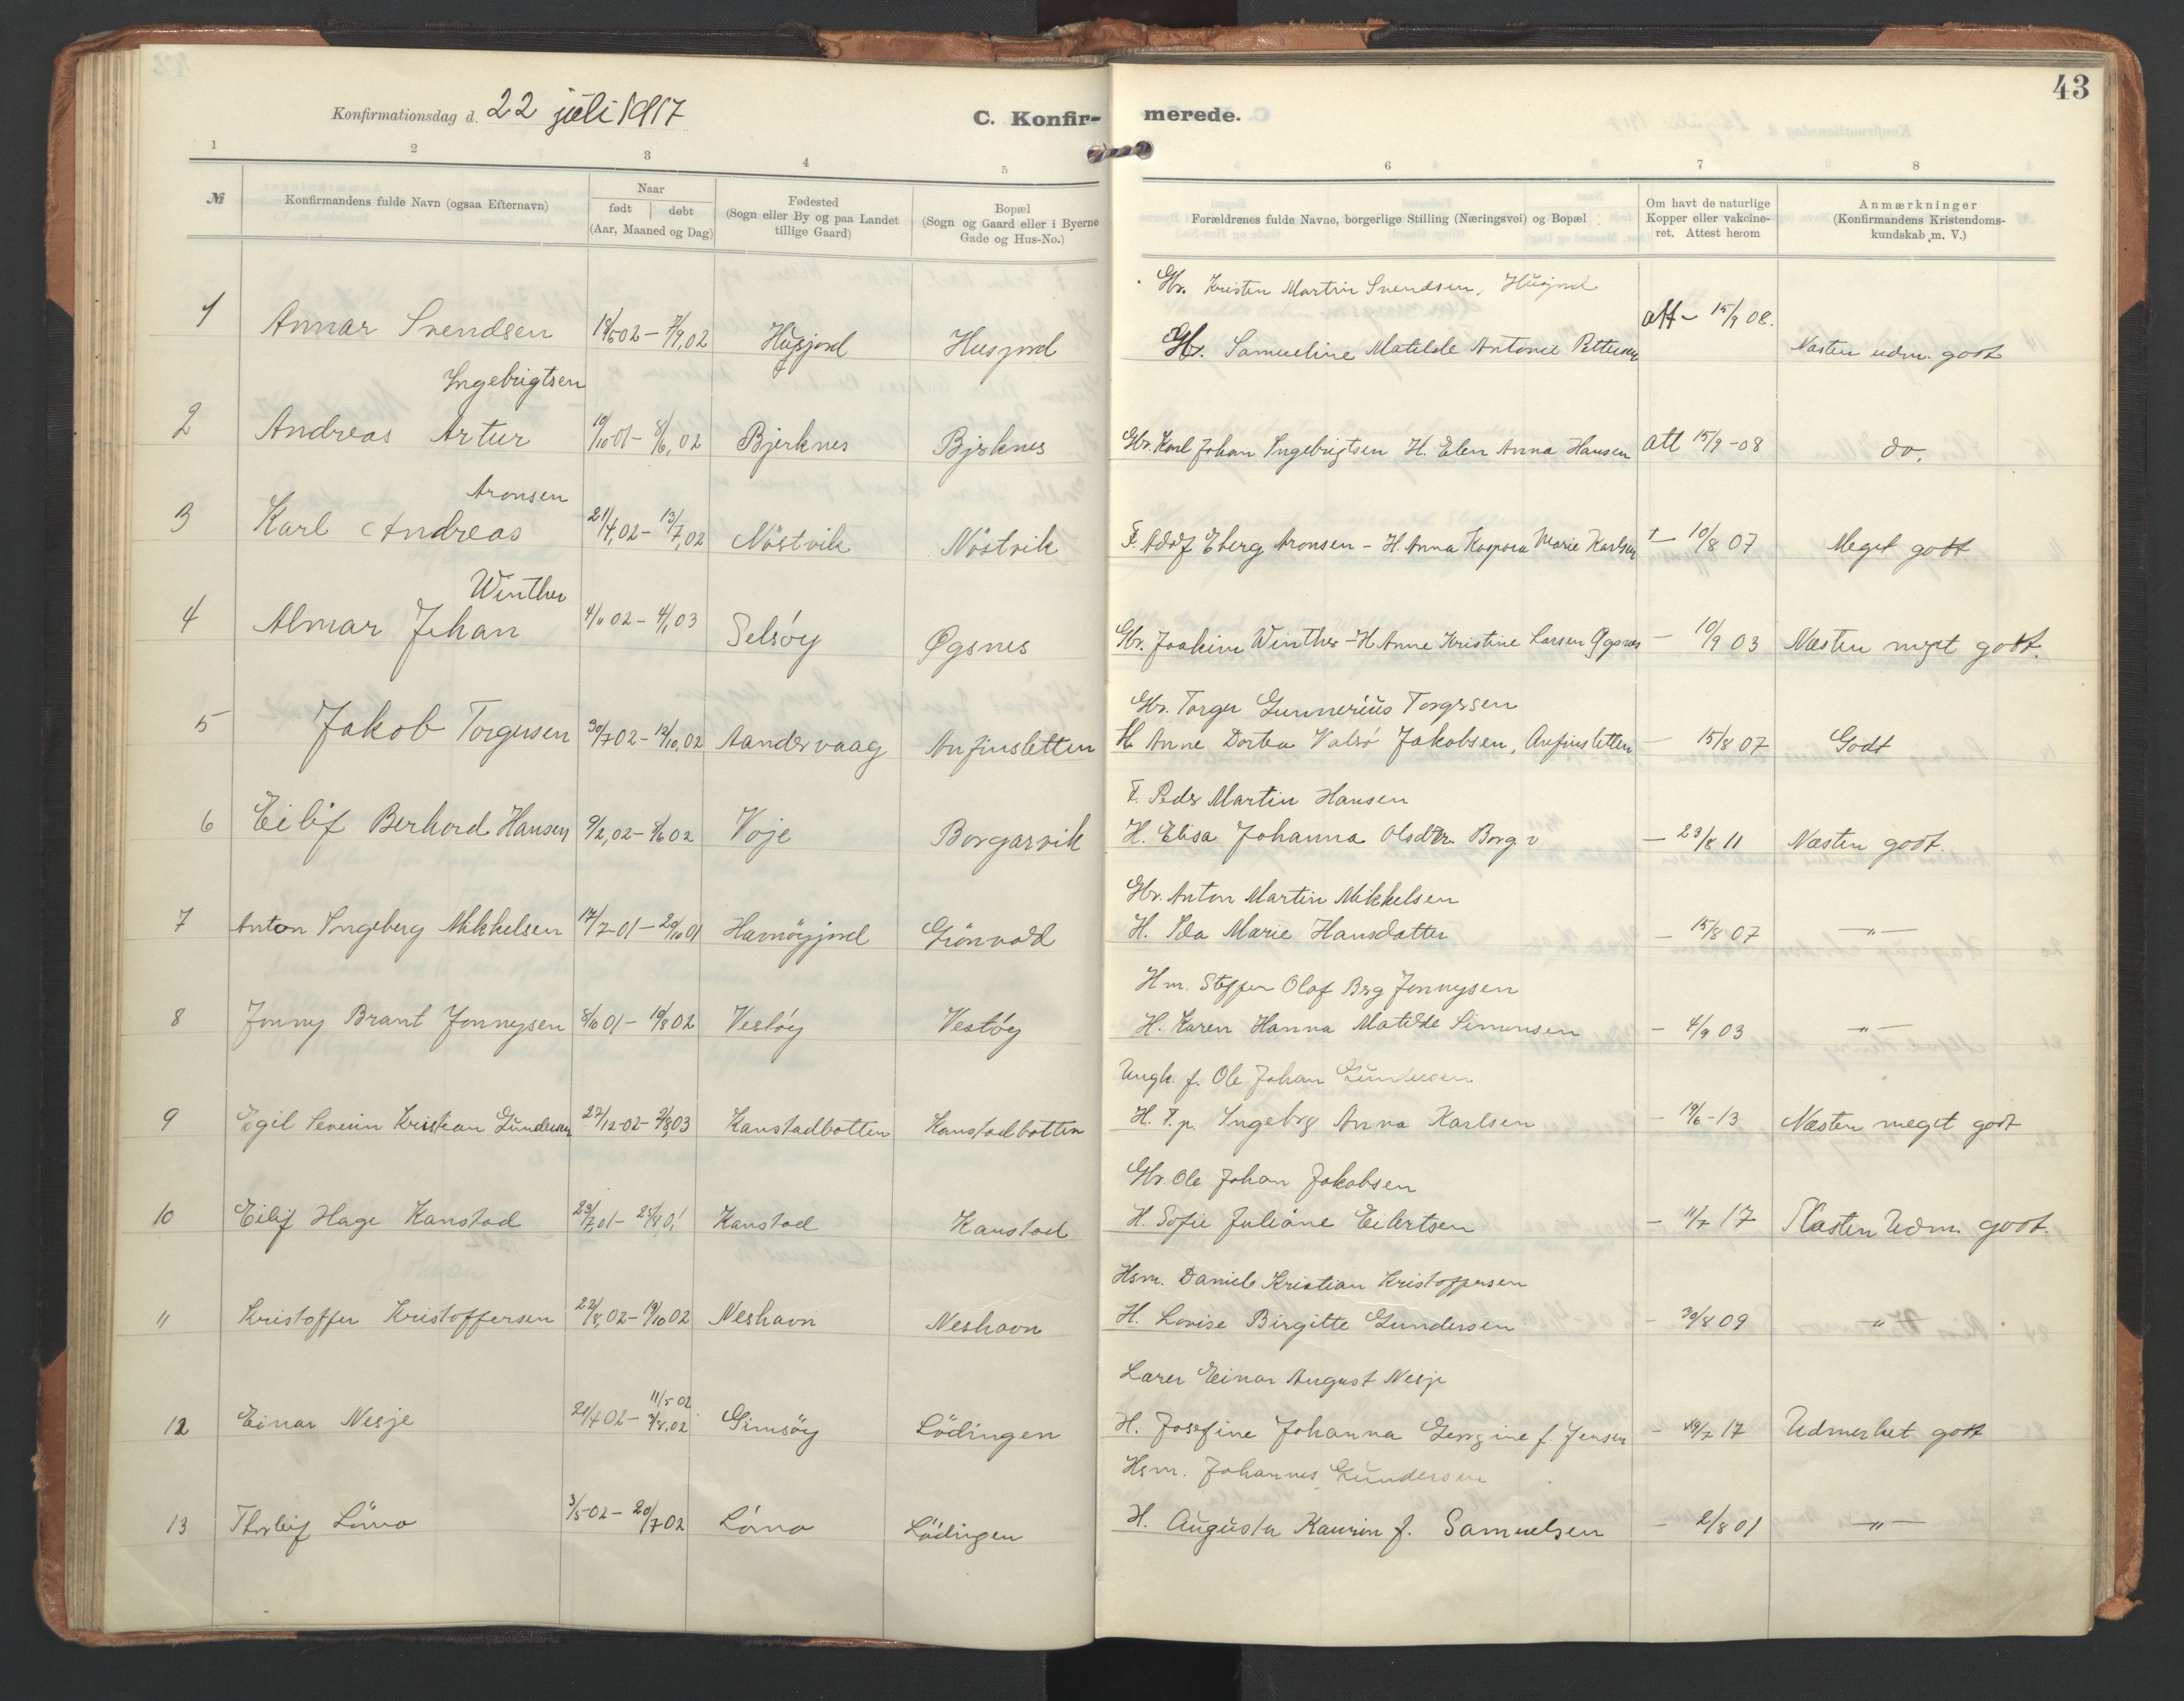 43
Konfirmationsdag d. 22 juli 1917
C. Konfir- merede.
1 2 3 4 5 6 7 8
№
Konfirmandens fulde Navn (ogsaa Efternavn)
Naar
født | døbt
(Aar, Maaned og Dag)
Fødested
(Sogn eller By og paa Landet
tillige Gaard)
Bopæl
(Sogn og Gaard eller i Byerne
Gade og Hus-No.)
Forældrenes fulde Navne, borgerlige Stilling (Næringsvei) og Bopæl
Om havt de naturlige
Kopper eller vakcine-
ret. Attest herom
Anmærkninger
(Konfirmandens Kristendoms-
kundskab m. V.)
Gbr. Kristen Martin Svendsen, Husjord
1 Annar Svendsen Husjord Husjord Samueline Matilde Antonie Pettersen att - 15/9 08. Næsten udm. godt
Ingebrigtsen
2 Andreas Artur 10/10 01 - 8/6, 02 Bjerknes Bjerknes Gbr. Karl Johan Ingebrigtsen H. Elen Anna Hansen att 15/9 -08 do.
Aronsen
3 Karl Andreas 21/4, 02 - 13/7, 02 Nöstvik Nöstvik F. Adolf Eberg Aronsen - H. Anna Kaspara Marie Karlsen - 10/8 07 Meget godt
Winther
4 Almar Johan 4/11 02 - 4/1 03 Selsöy Øgsnes Gbr. Joakim Winther - H. Anne Kristine Larsen Øgsnes - 10/9 03 Næsten meget godt.
Gbr. Torger Gunnerius Torgersen
5 Jakob Torgersen 30/7 02 - 12/10, 02 Aandervaag Anfinsletten H. Anne Dortea Valsö Jakobsen, Anfinsletten - 15/8 07 Godt
F. Peder Martin Hansen
6 Eilif Berhard Hansen 9/2, 02 - 8/6 02 Voje Borgarvik H. Elisa Johanna Olsdtr. Borg.v - 23/8 11 Næsten godt.
Gbr. Anton Martin Mikkelsen
7 Anton Ingeberg Mikkelsen 17/7 -01 - 20/10 01 Havnöyjord Grönvold H. Ida Marie Hansdatter - 15/8 07 - " -
Hm. Steffen Olaf Berg Jonnysen
8 Jonny Brant Jonnysen 8/10 01 - 10/8 02 Vestöy Vestöy H. Karen Hanna Matilde Simonsen - 4/9 03 - " -
Ungk. f. Ole Johan Gundersen
9 Egil Severin Kristian Gundersen 27/12-02 - 2/8 03 Kanstadbotten Kanstadbotten H. F. p. Ingeborg Anna Karlsen - 19/6 -13 Næsten meget godt
Gbr. Ole Johan Jakobsen
10 Eilif Hage Kanstad Kanstad Kanstad H. Sofie Juliane Eilertsen - 11/7 17 Næsten Udm. godt.
Hsm. Daniel Kristian Kristoffersen
11 Kristoffer Kristoffersen 22/8, 02 - 19/10 02 Neshavn Neshavn H. Lovise Birgitte Gundersen - 30/8 09 - " -
Lærer Einar August Nesje
11/5 02
12 Einar Nesje 21/4 02 - 3/8, 02 Gimsöy Lödingen H. Josefine Johanna Georgine f. Jensen - 17 Udmerket godt
Hsm. Johannes Gundersen
13 Thorleif Lövao 3/5 -02 - 20/7 02 Löva Lödingen H. Augusta Kaurin f. Samuelsen - 2/8 01 - " -